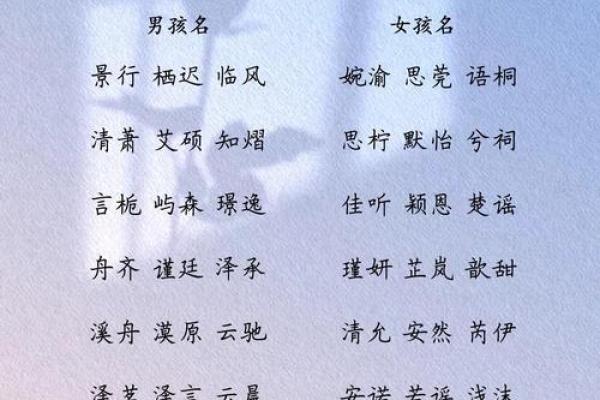 男孩名 女孩名
景行 栖迟 临风 婉渝 思莞 语桐
清萧 艾硕 知熠 思柠 默怡 兮祠
言栀 屿森 璟逸 佳听 颖恩 楚谣
舟齐 谨廷 泽承 瑾妍 芷岚 歆甜
溪舟 漠原 云驰 清允 安然 芮伊
泽茗 泽言 云晨 安诺 若谣 浅沫